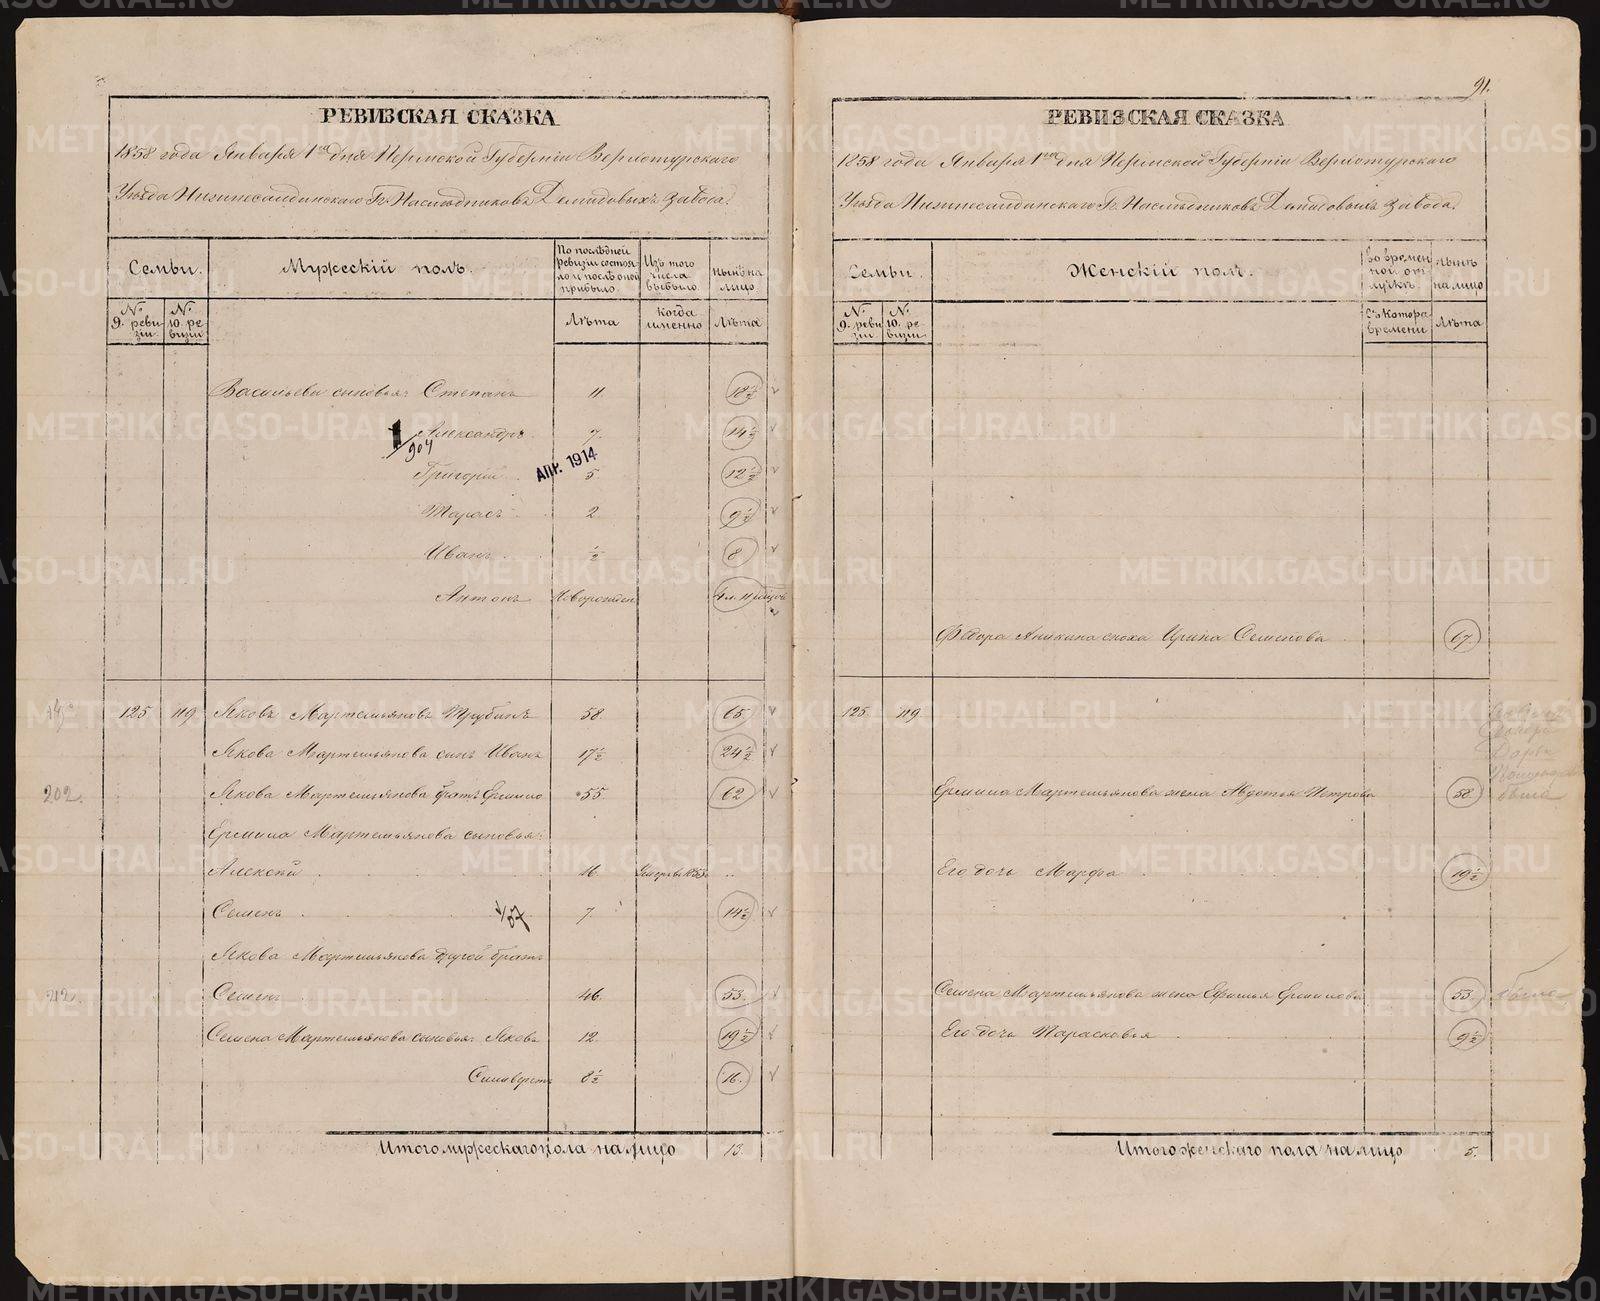 РЕВИЗСКАЯ СКАЗКА
1858 года Января 1го дня Пермской Губерніи Верхотурскаго
Уѣзда Нижнесалдинскаго Гг. Наслѣдниковъ Демидовыхъ завода.
Семьи.
Мужескій полъ.
По послѣдней ревизіи состояло и послѣ оной прибыло.
Изъ того числа выбыло.
нынѣ на лицо
№ 9. ревизіи
№ 10. ревизіи
Лѣта
когда именно
Лѣта
Васильевы сыновья: Степанъ 11. 18½
Александръ 7. 14½
1/904
Григорій 5. 12½
АПР. 1914
Тарасъ 2. 9½
Иванъ ½ 8
Антонъ Новорожден
125 119 Яковъ Мартемьяновъ Трубинъ 58. 65.
Якова Мартемьянова сынъ Иванъ 17½ 24½
202. Якова Мартемьянова братъ Ермило 55. 62
Ермила Мартемьянова сыновья:
Алексѣй 16.
Семенъ 7. 14½
Якова Мартемьянова другой братъ
212. Семенъ 46. 53.
Семена Мартемьянова сыновья: Яковъ 12. 19½
Силиверстъ 8½ 16.
Итого мужескаго пола на лицо 13.
91.
РЕВИЗСКАЯ СКАЗКА
1858 года Января 1го дня Пермской Губерніи Верхотурскаго
Уѣзда Нижнесалдинскаго Гг. Наслѣдниковъ Демидовыхъ завода.
Семьи.
Женскій полъ.
Во временной отлучкѣ.
нынѣ на лицо
№ 9. ревизіи
№ 10. ревизіи
Съ котора времени
Лѣта
Федора Аникина сноха Ирина Семенова 67.
125 119
Ермила Мартемьянова жена Авдотья Петрова 58.
Его дочь Марфа 19½
Семена Мартемьянова жена Ефимья Ермилова 53.
Его дочь Парасковья 9½
Итого женскаго пола на лицо 5.
METRIKI.GASO-URAL.RU